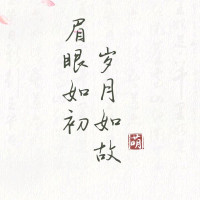 眉眼如初
岁月如故
萌